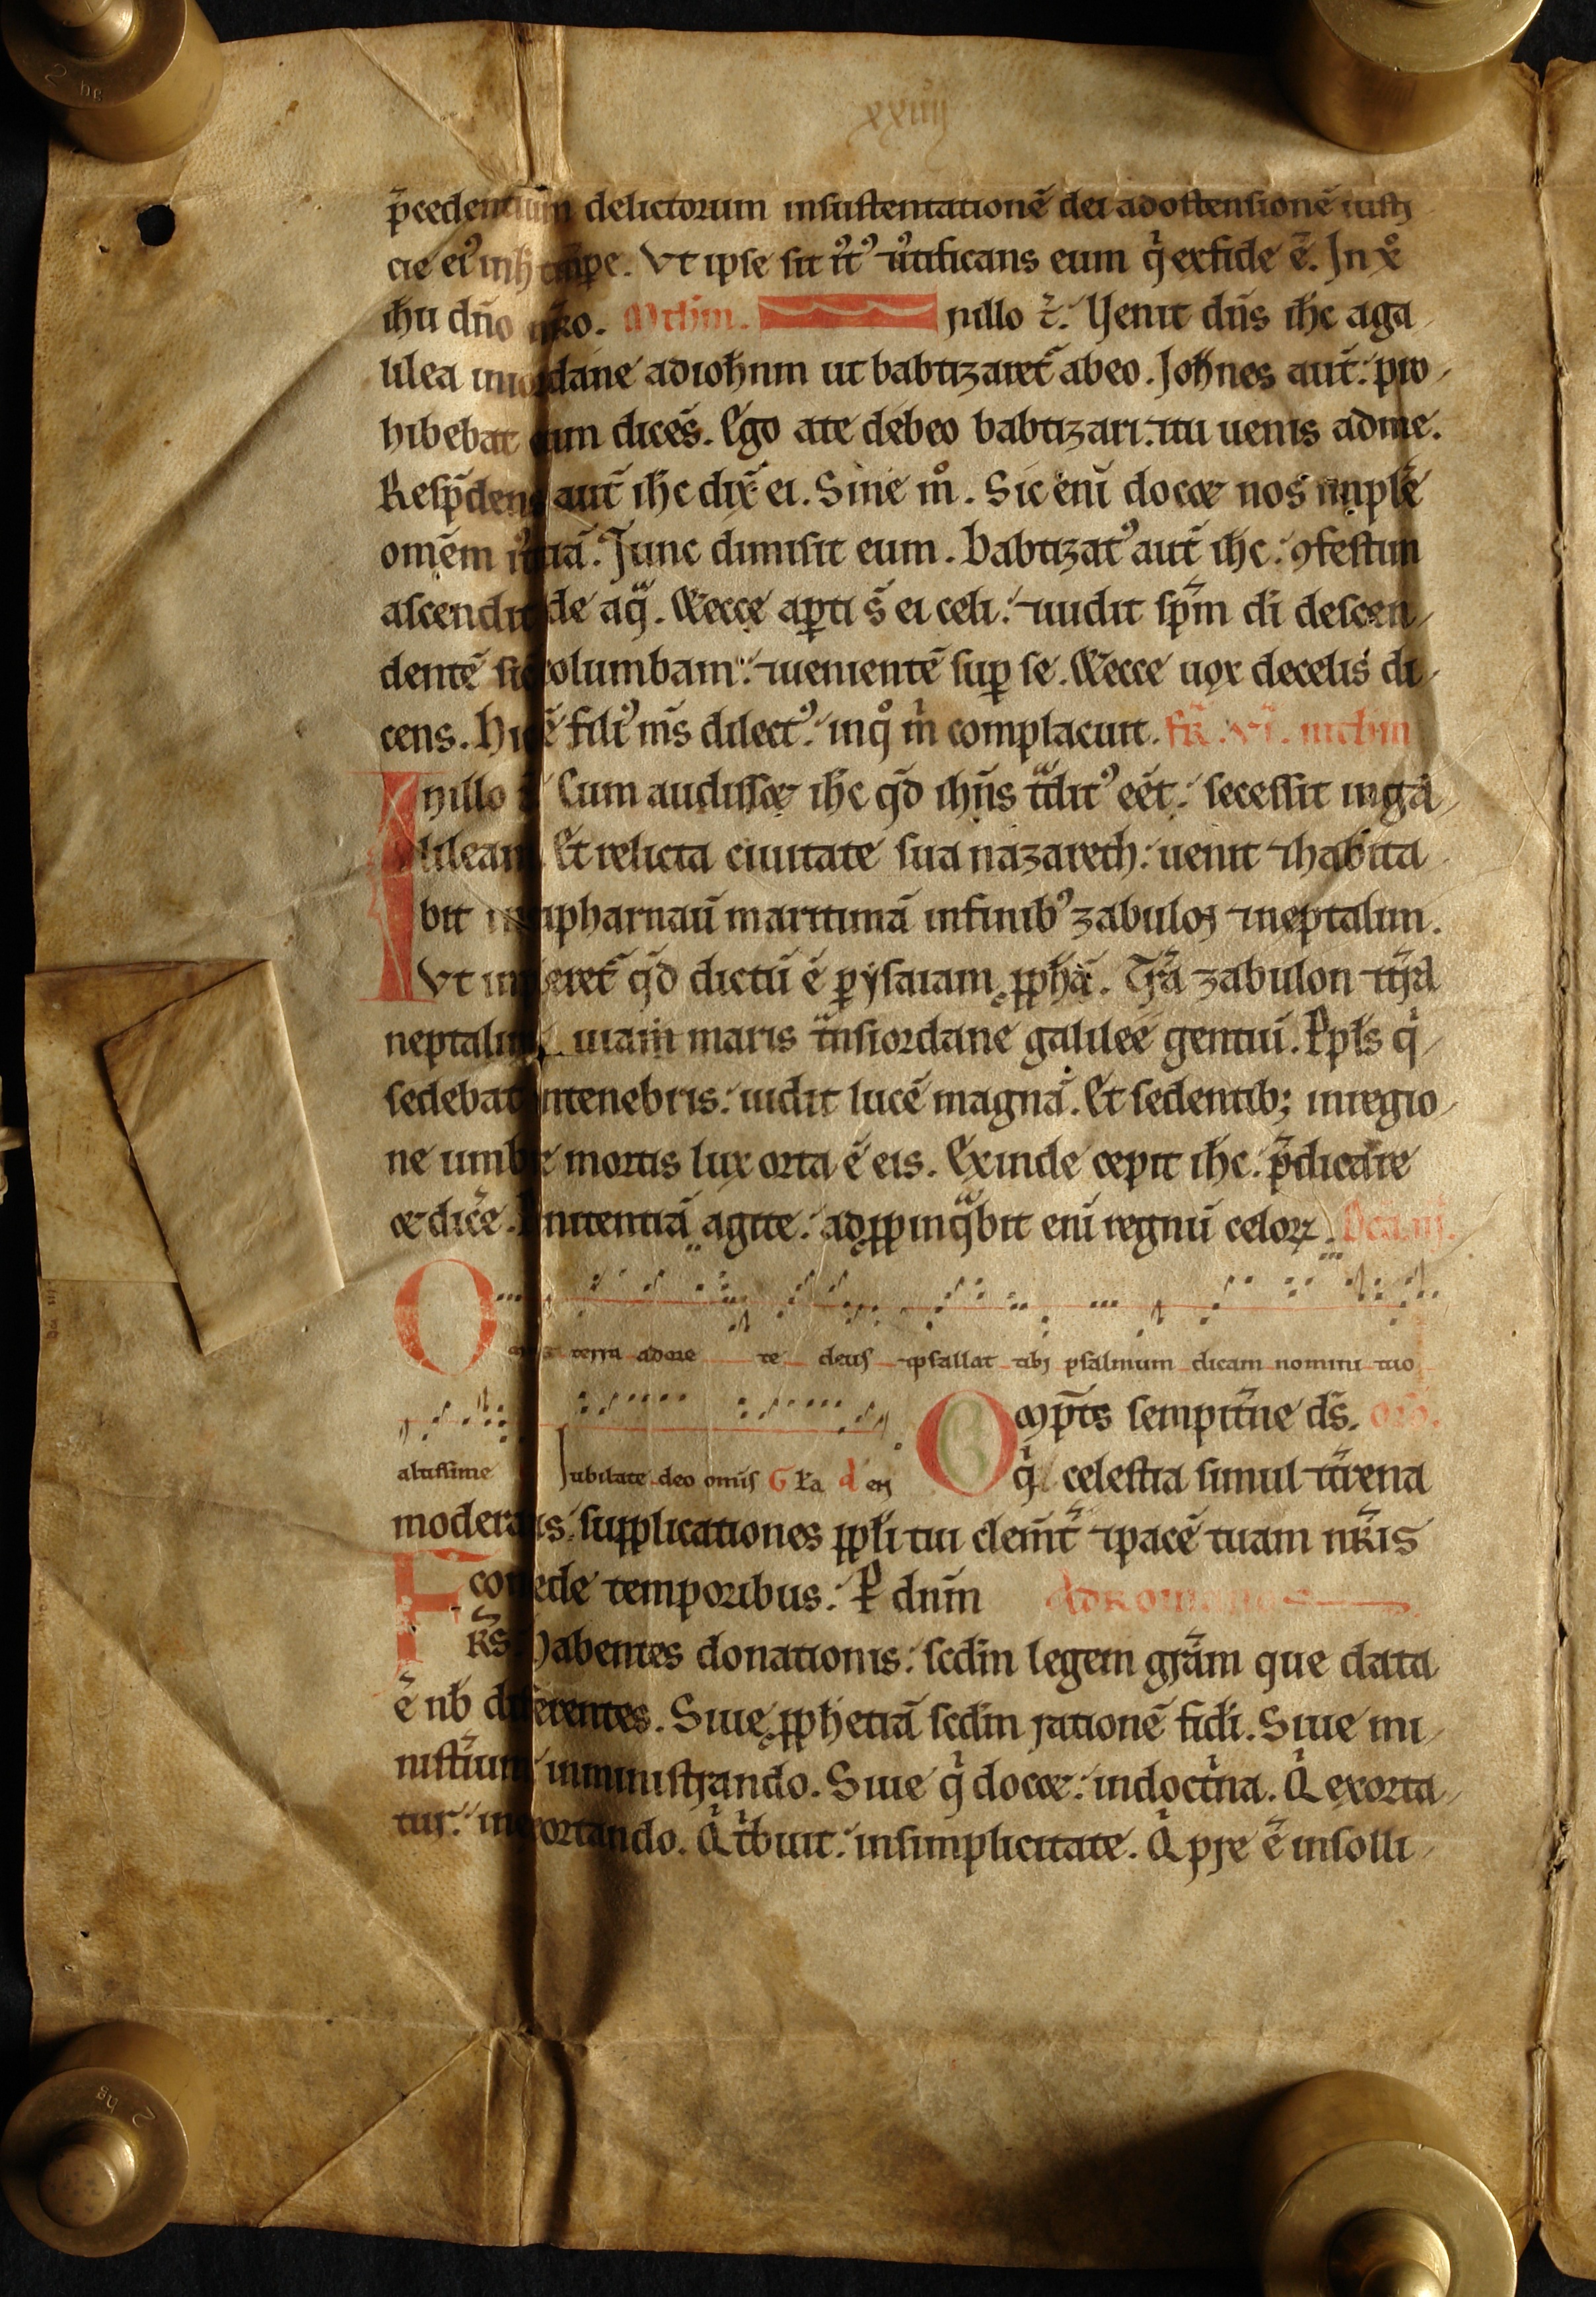 xxiiij
p̄cedentium delictorum insustentationē dei adostensionē iusti
cie ei᾽ inh tēpꝛe. Vt ipse sit iꝰtꝰ ⁊iꝰtificans eum qͥ exfide ē. In xͦ
ih̄u dn̄o nr̄o. Mth̄m. Jnillo t̄. Uenit dn̄s ih̄c aga
lilea in iordane adioh̄nm ut babtizaret᷑ abeo. Joh̄nes aut̄. pro
hibebat eum dicēs. Ego ate debeo babtizari. ⁊tu uenis adme.
Resp̄dens aut̄ ih̄c dix̄ ei. Sine mͦ. Sic enī docet nos implē
omēm iꝰtiā. Tunc dimisit eum. Babtizatꝰ aut̄ ih̄c. ꝯfestim
ascendit de aqͣ. Et ecce aꝑti s̄ ei celi. ⁊uidit sp̄m di descen
dentē sic columbam. ⁊uenientē suꝑ se. Et ecce uox decelis di
cens. Hic ē filiꝰ m̄s dilectꝰ. inqͦ mͥ complacuit. fr̄. vi. mthm
Jnillo t̄ Cum audisset ih̄c qd̄ ioh̄s tͣditꝰ eēt. secessit inga
lileam. Et relicta ciuitate sua nazareth. uenit ⁊habita
bit in capharnaū maritimā infinibꝰ zabulon ⁊neptalim.
Vt impleret᷑ qd̄ dictū ē ꝑ ysaiam ꝓph̄ā. Tr̄a zabulon ⁊tr̄a
neptalim. uiam maris tͣnsiordane galileē gentiū. Ppl̄s qͥ
sedebat intenebris. uidit lucē magnā. Et sedentib; inregio
ne umbre mortis lux orta ē eis. Exinde cepit ih̄c. p̄dicare
et dic̄e. Penitentiā agite. adꝓpinqͣbit enī regnū celoꝝ. Dca. iij.
Omnis terra adore te deus ⁊psallat tibi psalmum dicam nomini tuo
altissime Jubilate deo omīs G Ra d en
Omp̄ts sempit̄ne ds̄. or̄o.
qͥ celestia simul ⁊t̄rena
moderaris. supplicationes ppl̄i tui clem̄t᷑ ⁊pacē tuam nr̄is
concede temporibus. P dnm̄ Ad Romanos
Fr̄s Habentes donationis. scdm̄ legem gr̄am que data
ē nb̄ differentes. Siue ꝓphetiā scdm̄ rationē fidi. Siue mi
nist̄ium inministrando. Siue qͥ docet. indoctͥna. Qͥ exorta
tur. in exortando. Qͥ tͥbuit. insimplicitate. Qͥ pre ē insolli